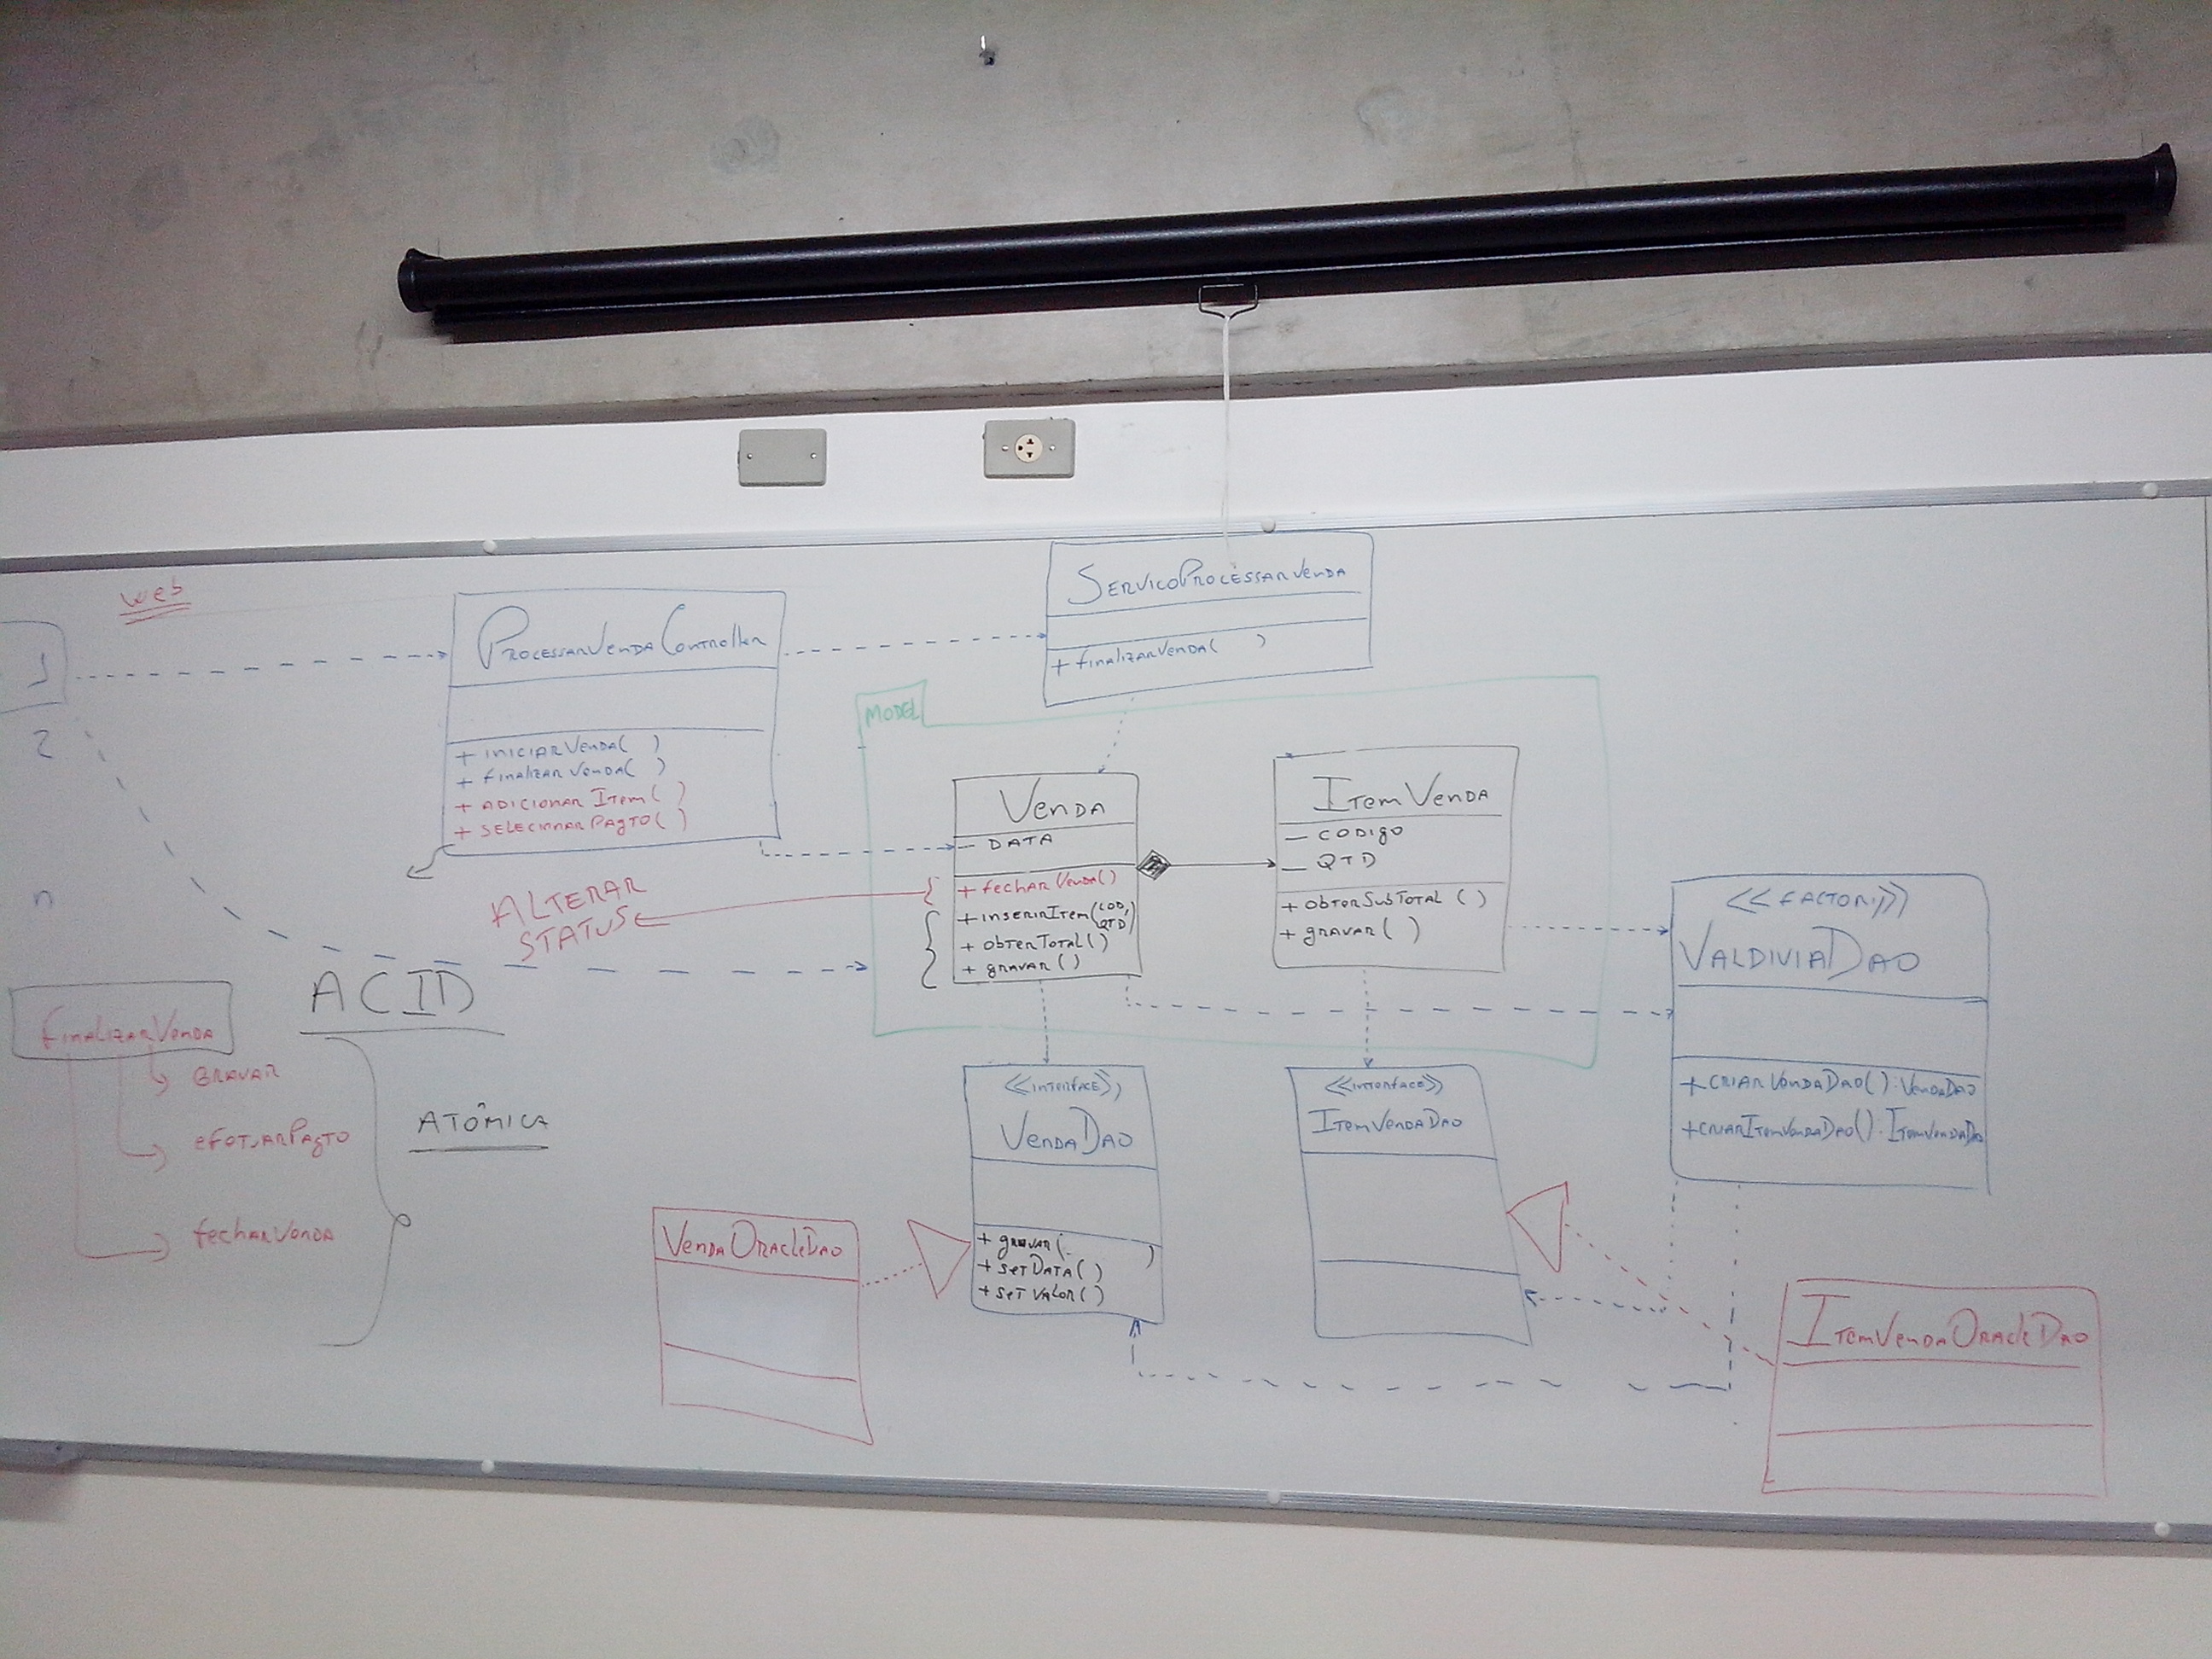 web
1
2
n
ProcessarVendaController
+ iniciarVenda( )
+ finalizarVenda( )
+ adicionarItem( )
+ selecionarPagto( )
ServicoProcessarVenda
+ finalizarVenda( )
MODEL
Venda
- DATA
+ fecharVenda()
+ inserirItem(COD,
QTD)
+ obterTotal()
+ gravar()
ItemVenda
- CODIGO
- QTD
+ obterSubTotal ( )
+ gravar( )
ALTERAR
STATUS
<<FACTORY>>
ValdiviaDao
+criarVendaDao():VendaDao
+criarItemVendaDao():ItemVendaDao
ACID
ATÔMICA
finalizarVenda
GRAVAR
fecharVenda
<<interface>>
VendaDao
+ gravar( )
+ setData( )
+ setValor( )
<<interface>>
ItemVendaDao
VendaOracleDao
ItemVendaOracleDao